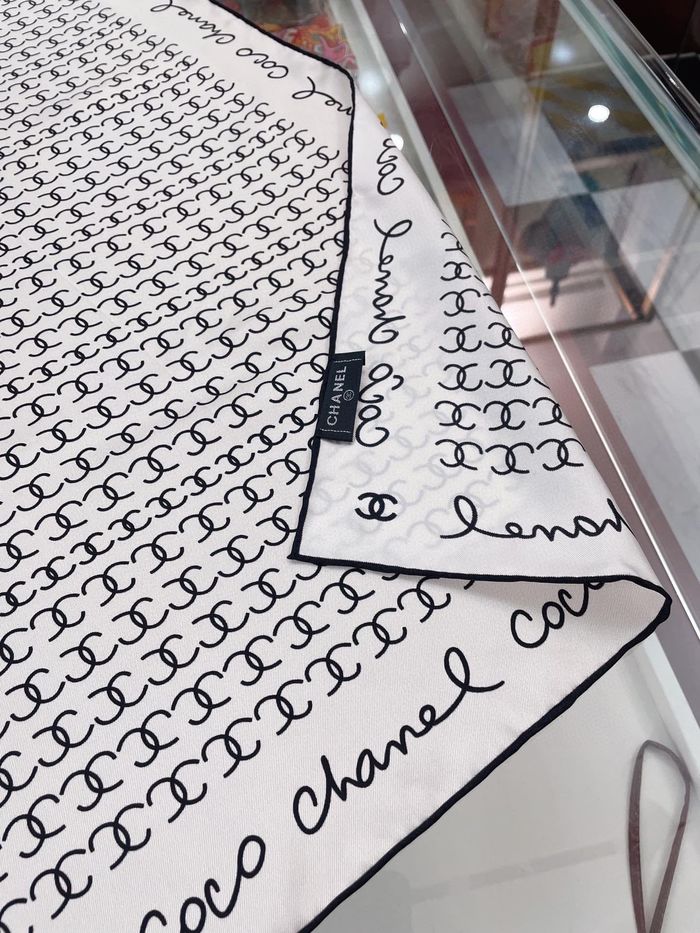 coco chanel
coco
chanel
coco
CHANEL
chanel
coco chanel coco